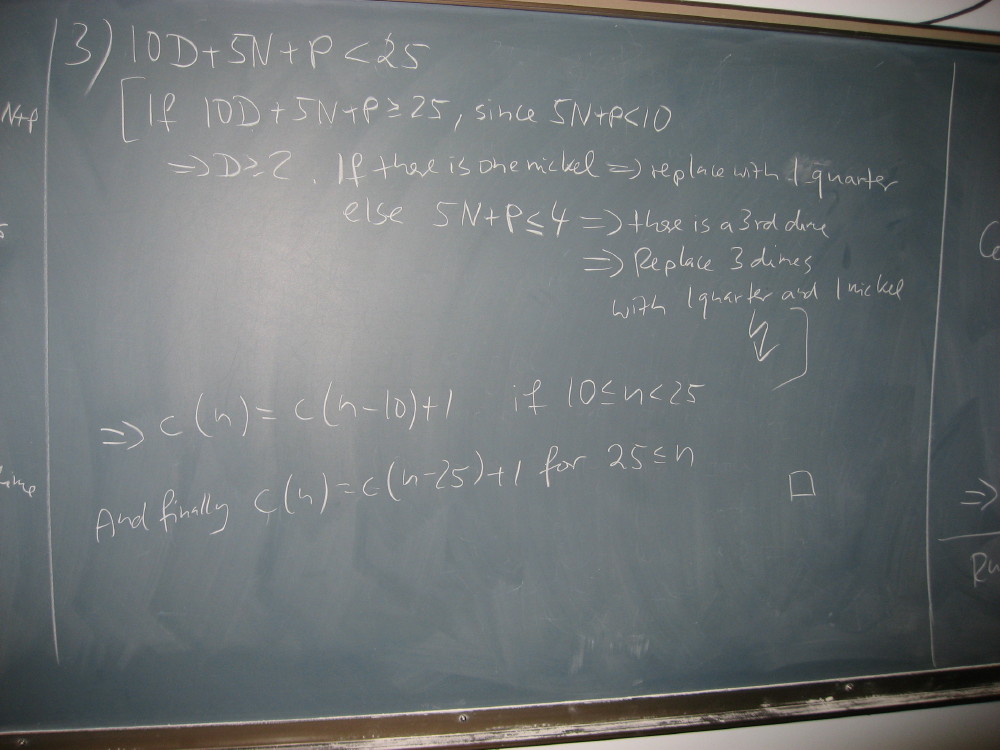 3) 10D+5N+P<25
[If 10D+5N+P≥25, since 5N+P<10
⇒D≥2. If there is one nickel ⇒ replace with 1 quarter
else 5N+P≤4 ⇒ there is a 3rd dime
⇒ Replace 3 dimes
with 1 quarter and 1 nickel
↯]
⇒ c(n)=c(n-10)+1 if 10≤n<25
And finally c(n)=c(n-25)+1 for 25≤n □
N+P
⇒